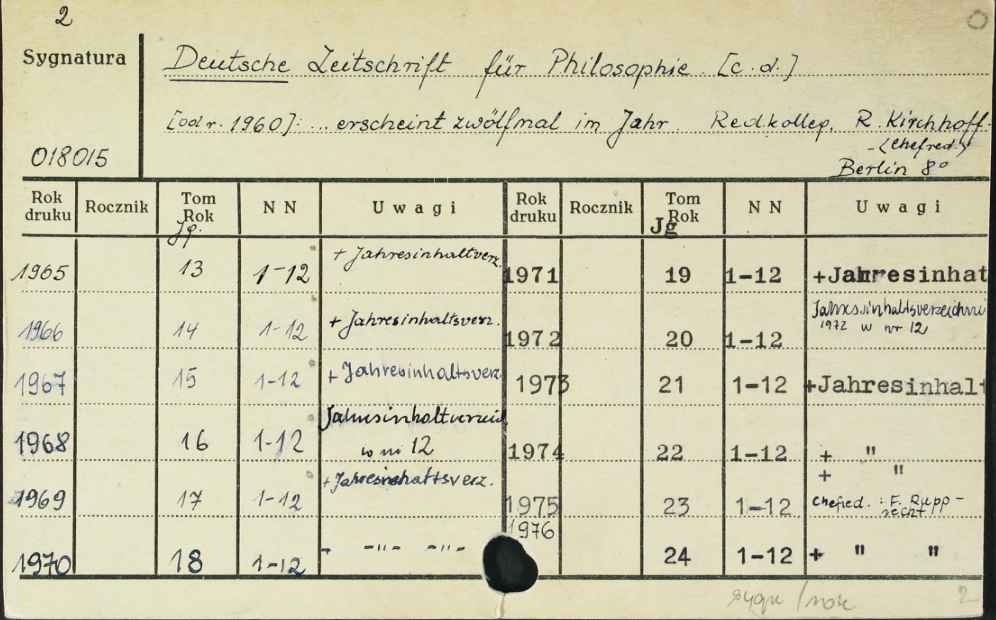 2
Sygnatura
Deutsche Zeitschrift für Philosophie. [c.d.]
[od r. 1960]: ... erscheint zwölfmal im Jahr. Redkolleg. R. Kirchhoff.
(Chefred.)
018015
Berlin 8°
Rok druku Rocznik Tom Rok NN Uwagi Rok druku Rocznik Tom Rok NN Uwagi
Jg. Jg
1965 13 1-12 + Jahresinhaltverz. 1971 19 1-12 +Jahresinhat
1966 14 1-12 + Jahresinhaltsverz. 1972 20 1-12 Jahresinhaltsverzeichni
1972 w nr 12
1967 15 1-12 + Jahresinhaltsverz 1973 21 1-12 +Jahresinhalt
1968 16 1-12 Jahresinhaltverzeich
w nr 12 1974 22 1-12 + "
+ "
1969 17 1-12 + Jahresinhaltsverz. 1975 23 1-12 Chefred. : F. Rupp-
recht
1976
1970 18 1-12 - -"- -"- 24 1-12 + " "
2